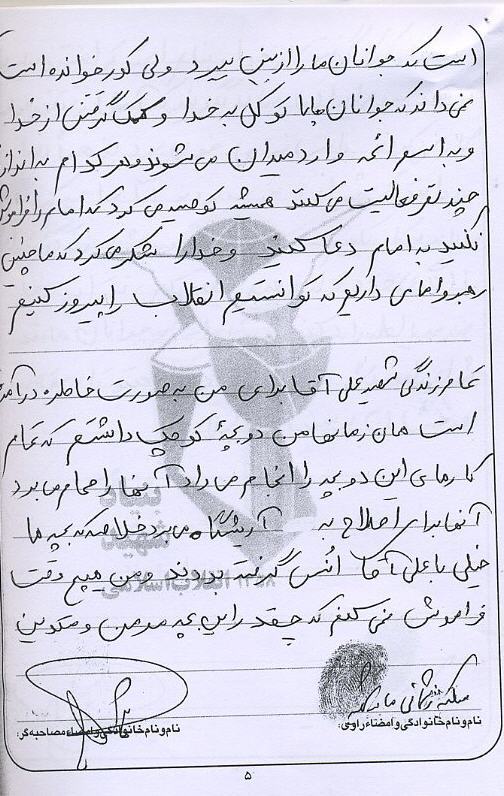 است که جوانان ما را از بین ببرد ولی کور خوانده است
نمی داند که جوانان ما با توکل به خدا و کمک گرفتن از خدا
و به اسم ائمه وارد میدان می شوند و هر کدام به انداز
چند نفر فعالیت می کنند همیشه توصیه می کرد که امام را فراموش
نکنید به امام دعا کنید و خدا را شکر می کرد که ما چنین
رهبر و امامی داریم که توانستیم انقلاب را پیروز کنیم
تمام زندگی شهید علی آقا برای من به صورت خاطره در آمده
است همان زمانها من دو بچۀ کوچک داشتم که تمام
کارهای این دو بچه را انجام می داد آنها را حمام می برد
آنها برای اصلاح به آرایشگاه می برد خلاصه که بچه ها
خیلی با علی آقا انُس گرفته بودند و من هیچ وقت
فراموش نمی کنم که چقدر این بچه مومن و متدین
بنیاد
شهید
انقلاب اسلامی
نام و نام خانوادگی و امضاء راوی:
نام و نام خانوادگی و امضاء مصاحبه گر:
۵